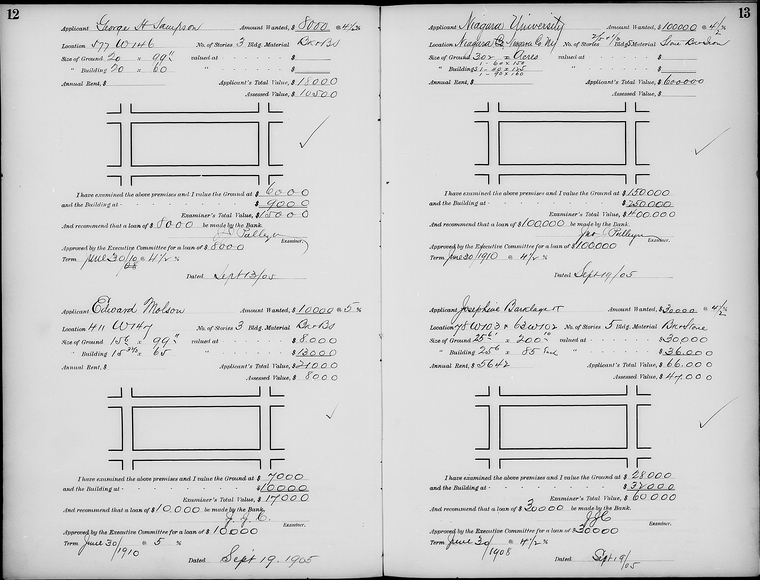 12
Applicant George H Sampson Amount Wanted, $ 8000 @ 4½ %
Location 577 W 146 No. of Stories 3 Bldg. Material Bk & BS
Size of Ground 20 x 99¹¹ valued at $
" Building 20 x 60 " $
Annual Rent, $ Applicant's Total Value, $ 18000
Assessed Value, $ 10500
I have examined the above premises and I value the Ground at $ 6000
and the Building at $ 9000
Examiner's Total Value, $ 15000
And recommend that a loan of $ 8000 be made by the Bank.
Examiner.
Approved by the Executive Committee for a loan of $ 8000
Term June 30/10 @ 4½ %
Dated Sept 13/05
Applicant Edward Molson Amount Wanted, $ 10000 @ 5 %
Location 411 W 147 No. of Stories 3 Bldg. Material Bk & BS
Size of Ground 15⁶ x 99¹¹ valued at $ 8000
" Building x 65 " $ 13000
Annual Rent, $ Applicant's Total Value, $ 21000
Assessed Value, $ 8000
I have examined the above premises and I value the Ground at $ 7000
and the Building at $ 10000
Examiner's Total Value, $ 17000
And recommend that a loan of $ 10,000 be made by the Bank.
J. J. C.
Examiner.
Approved by the Executive Committee for a loan of $ 10000
Term June 30/1910 @ 5 %
Dated Sept 19, 1905
13
Applicant Niagara University Amount Wanted, $ 100000 @ 4½ %
Location Niagara Co NY No. of Stories Bldg. Material Stone
Size of Ground 302 x Acres valued at $
" Building 1-60 x 150 " $
1-90 x 160
Annual Rent, $ Applicant's Total Value, $ 600000
Assessed Value, $
I have examined the above premises and I value the Ground at $ 150000
and the Building at $ 250000
Examiner's Total Value, $ 400.000
And recommend that a loan of $ 100,000 be made by the Bank.
Examiner.
Approved by the Executive Committee for a loan of $ 100000
Term June 30/1910 @ 4½ %
Dated Sept 19/05
Applicant Josephine Amount Wanted, $ 30000 @ 4½ %
Location 78 W 103 & 63 W 102 No. of Stories 5 Bldg. Material Bk & Stone
Size of Ground 25⁶ x 200 valued at $ 30000
" Building 25⁶ x 85 " $ 36000
Annual Rent, $ 5642 Applicant's Total Value, $ 66.000
Assessed Value, $ 47.000
I have examined the above premises and I value the Ground at $ 28000
and the Building at $ 32000
Examiner's Total Value, $ 60000
And recommend that a loan of $ 30000 be made by the Bank.
JJC
Examiner.
Approved by the Executive Committee for a loan of $ 30000
Term June 30/1908 @ 4½ %
Dated Sept 19/05